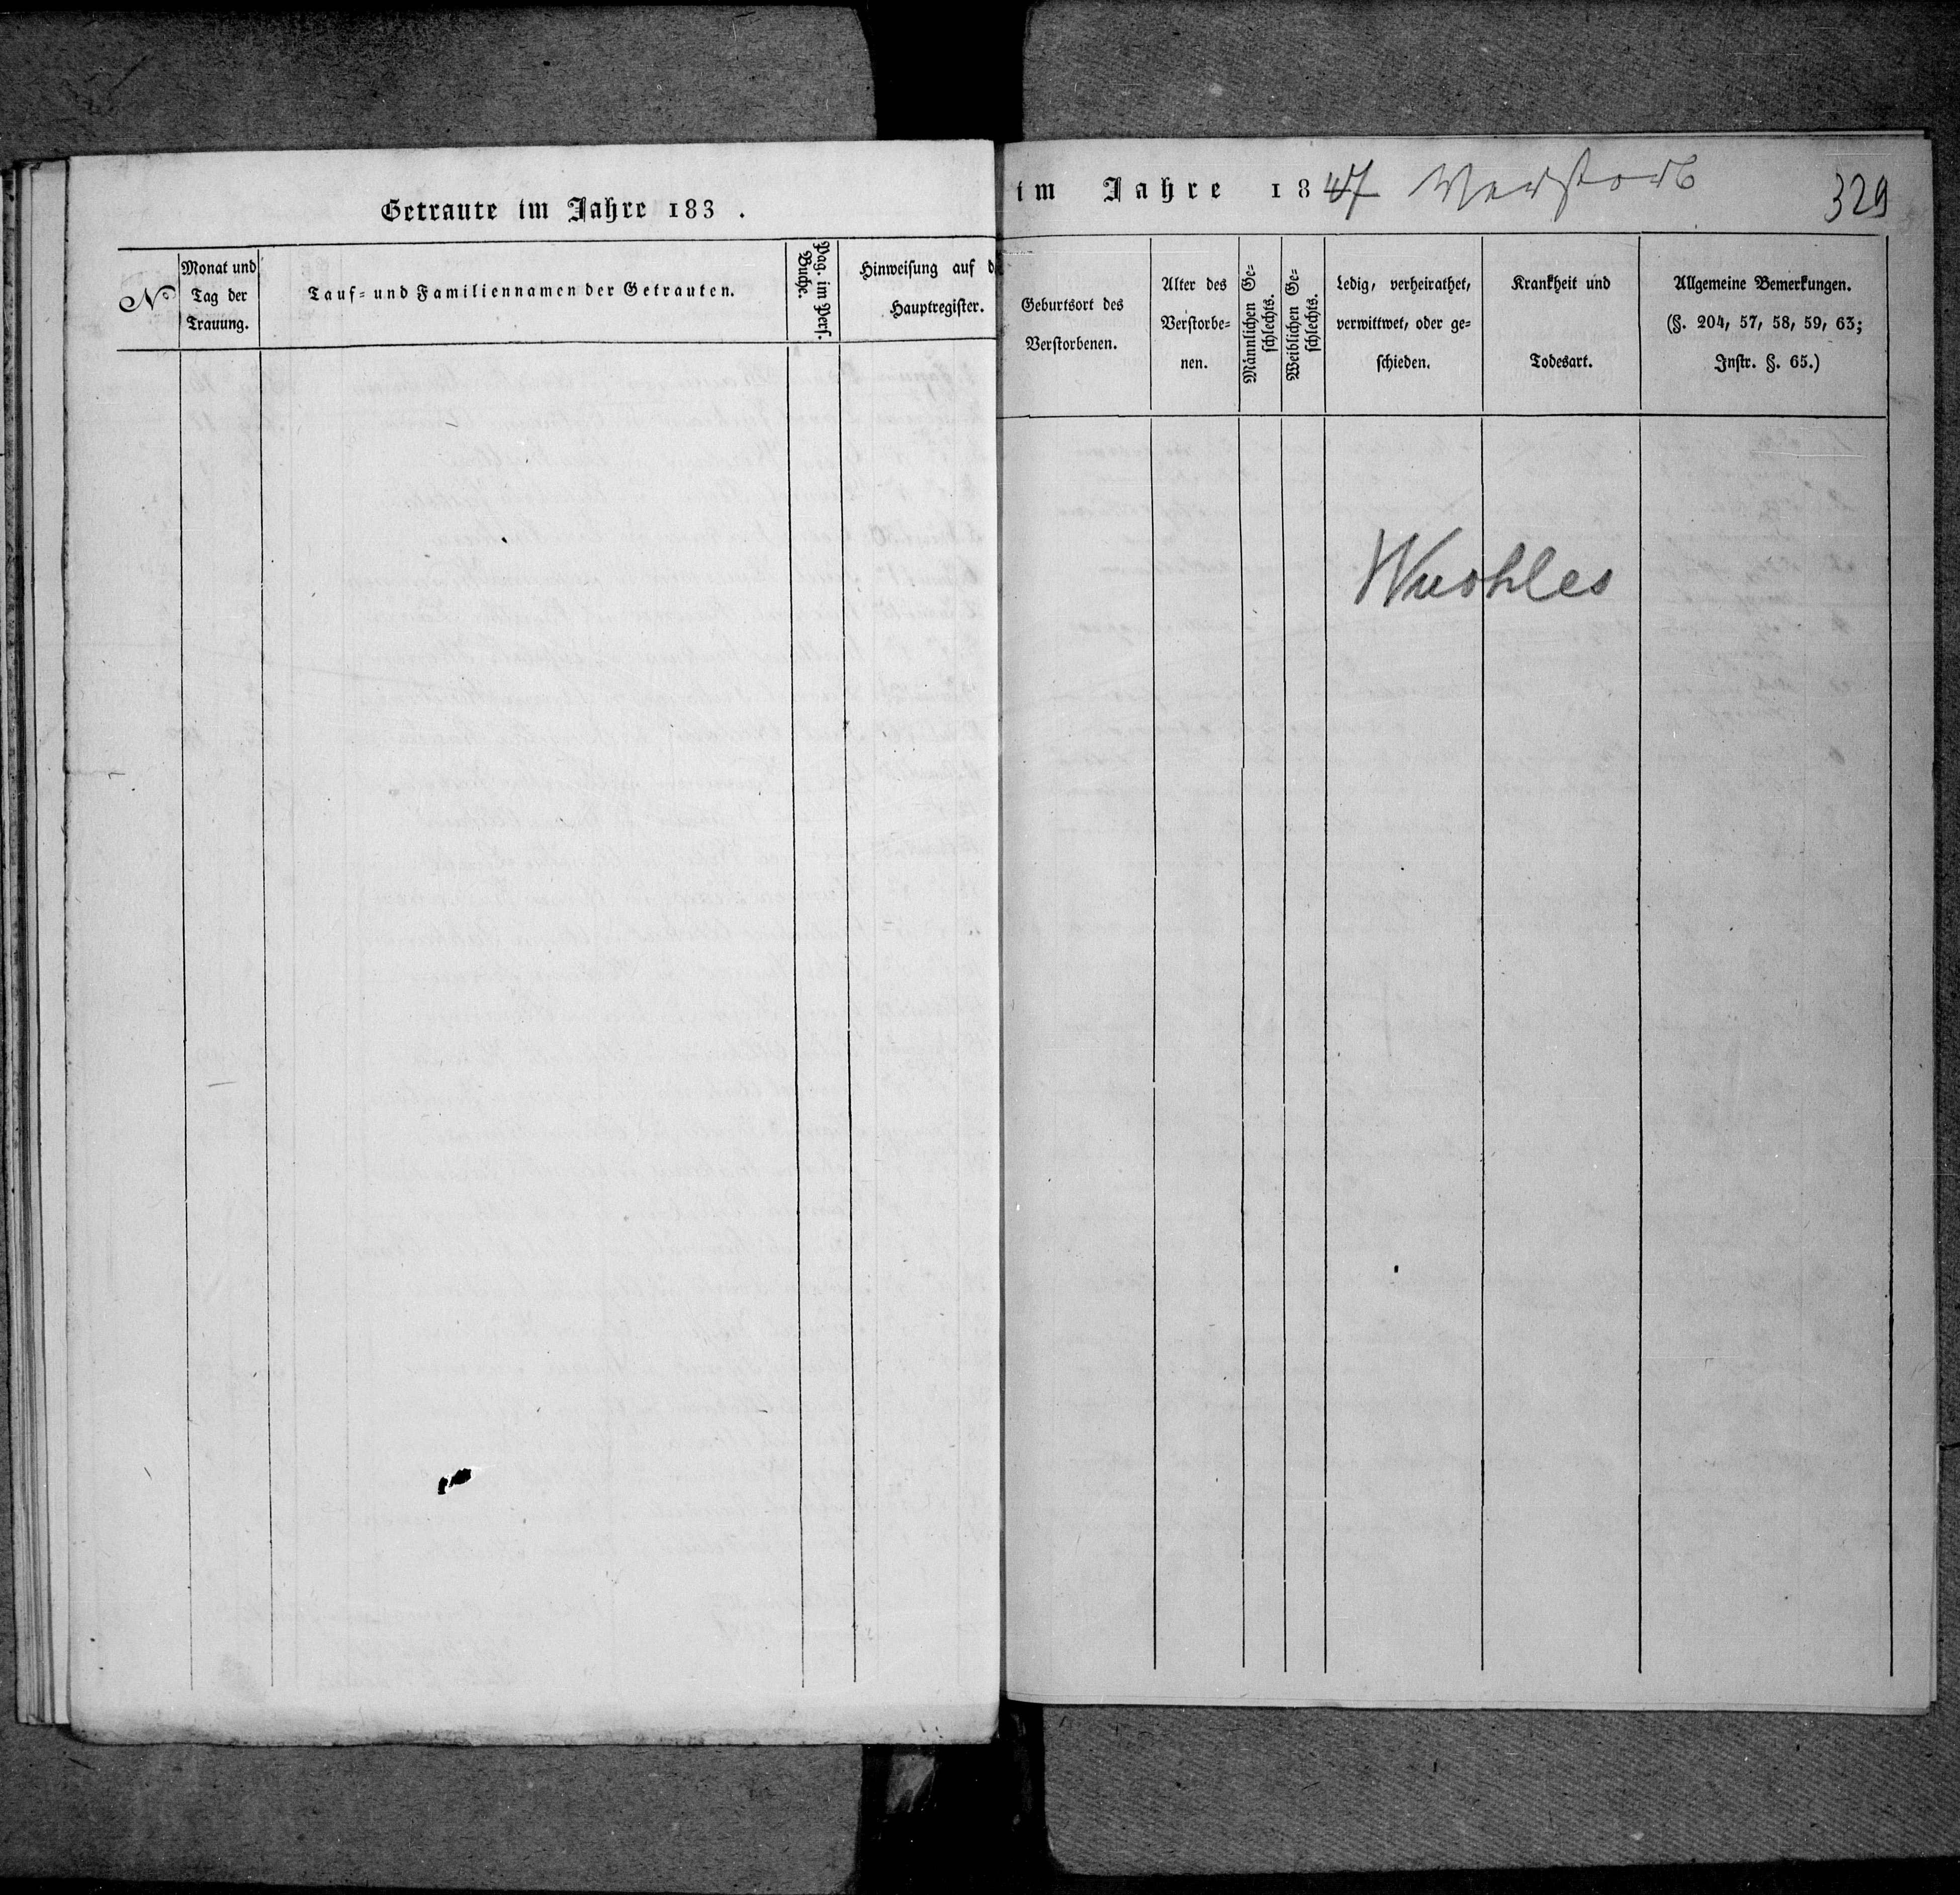 Getraute im Jahre 183 .
№
Monat und
Tag der
Trauung.
Tauf- und Familiennamen der Getrauten.
Pag. im Pers.
Buche.
Hinweisung auf d
Hauptregister.
im Jahre 1847 Verstorb
329
Geburtsort des
Verstorbenen.
Alter des
Verstorbe-
nen.
Männlichen Ge-
schlechts.
Weiblichen Ge-
schlechts.
Ledig, verheirathet,
verwittwet, oder ge-
schieden.
Krankheit und
Todesart.
Allgemeine Bemerkungen.
(§. 204, 57, 58, 59, 63;
Instr. §. 65.)